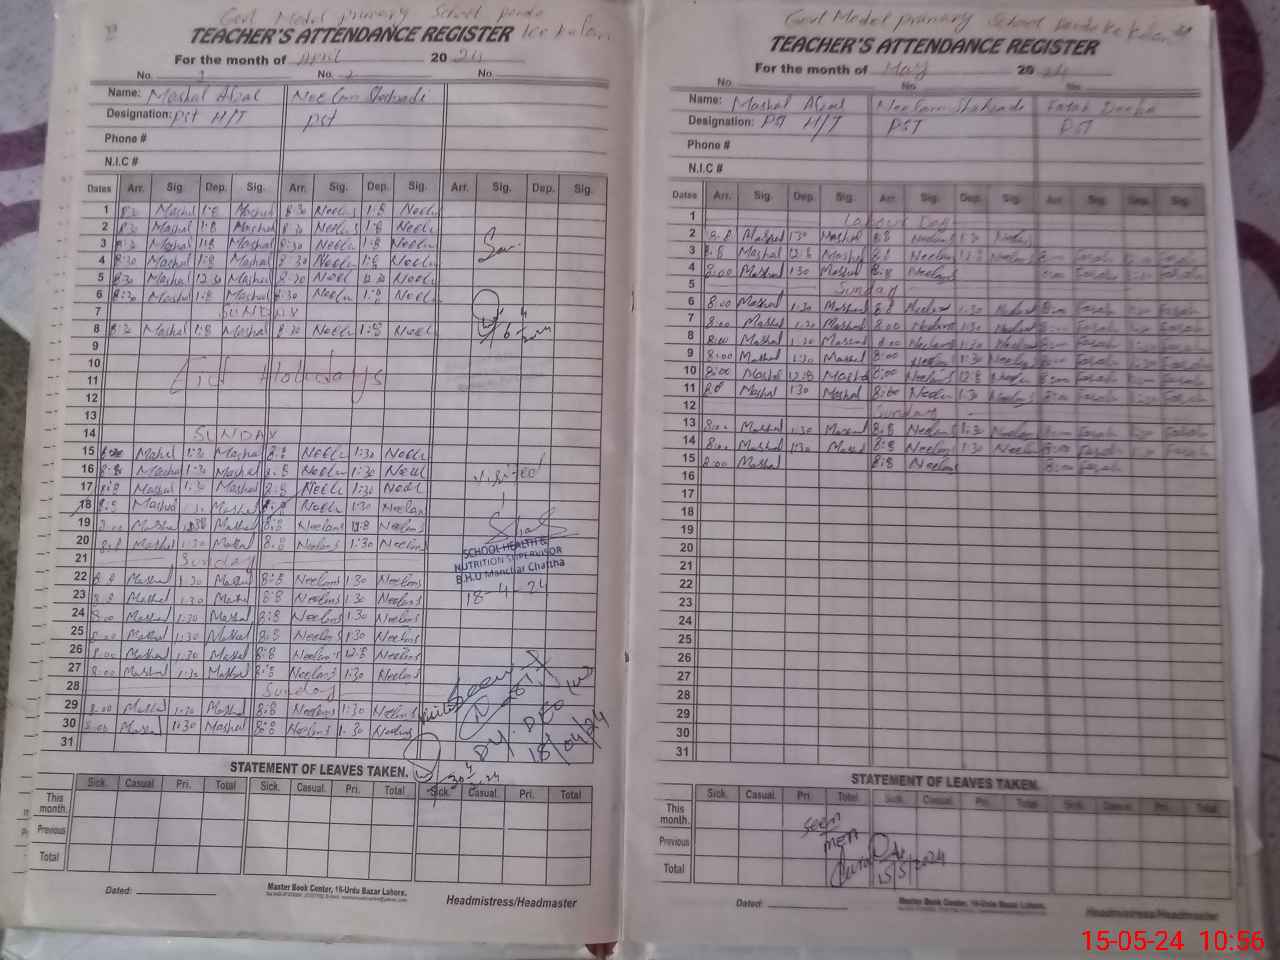 Govt Model primary School
TEACHER'S ATTENDANCE REGISTER
For the month of April 2024
No. 1 No. 2 No.
Name: Mashal Afzal Neelam Shehzadi
Designation: PST H/T PST
Phone #
N.I.C #
Dates Arr. Sig. Dep. Sig. Arr. Sig. Dep. Sig. Arr. Sig. Dep. Sig.
1 8:30 Mashal 1:8 Mashal 8:30 Neelam 1:8
2 8:30 Mashal 1:8 Mashal 8:30 1:8
3 8:30 Mashal 1:8 Mashal 8:30 1:8
4 8:30 Mashal 1:8 Mashal 8:30 1:8
5 8:30 Mashal 12:30 Mashal 8:30 12:30
6 8:30 Mashal 1:8 Mashal 8:30 1:8
7 SUNDAY
8 Mashal 1:8 Mashal 8:30 1:8
9
10
11 Eid Holidays
12
13
14 SUNDAY
15 Mashal 1:30 Mashal 8:8 1:30
16 8:8 Mashal 1:30 Mashal 8:8 1:30
17 8:8 Mashal 1:30 Mashal 8:8 1:30
18 8:8 Mashal Mashal 1:30 Neelam
19 8:00 Mashal Mashal 8:8 Neelam 12:8 Neelam
20 Mashal 1:30 Mashal 8:8 Neelam 1:30 Neelam
21 Sunday
22 8:8 Mashal 1:30 Mashal 8:8 Neelam 1:30 Neelam
23 8:8 Mashal 1:30 Mashal 8:8 Neelam 1:30 Neelam
24 8:00 Mashal 1:30 Mashal 8:8 Neelam 1:30 Neelam
25 8:00 Mashal 1:30 Mashal 8:8 Neelam 1:30 Neelam
26 8:00 Mashal 1:30 Mashal 8:8 Neelam 12:8 Neelam
27 8:00 Mashal 1:30 Mashal 8:8 Neelam 1:30 Neelam
28 Sunday
29 8:00 Mashal 1:30 Mashal 8:8 Neelam 1:30 Neelam
30 8:00 Mashal 1:30 Mashal 8:8 Neelam 1:30 Neelam
31
visited
SCHOOL HEALTH &
NUTRITION SUPERVISOR
B.H.U Manchar Chattha
18-4-24
Seen
Dy. DEO (W)
18/04/24
STATEMENT OF LEAVES TAKEN.
Sick. Casual Pri. Total Sick. Casual. Pri. Total Sick. Casual. Pri. Total
This month.
Previous
Total
Dated:
Master Book Center, 16-Urdu Bazar Lahore.
Headmistress/Headmaster
Govt Model primary School
TEACHER'S ATTENDANCE REGISTER
For the month of May 2024
No. No. No.
Name: Mashal Afzal Neelam Shehzadi Farah Deeba
Designation: PST H/T PST PST
Phone #
N.I.C #
Dates Arr. Sig. Dep. Sig. Arr. Sig. Dep. Sig. Arr. Sig. Dep. Sig.
1 Labour Day
2 Mashal 1:30 Mashal 8:8 Neelam 1:30 Neelam
3 8:8 Mashal 12:8 Mashal 8:8 Neelam 12:8 Neelam 8:00 Farah Farah
4 8:00 Mashal 1:30 Mashal 8:8 Neelam 8:00 Farah Farah
5 Sunday
6 8:00 Mashal 1:30 Mashal 8:8 Neelam 1:30 Neelam 8:00 Farah Farah
7 8:00 Mashal 1:30 Mashal 8:00 Neelam 1:30 Neelam 8:00 Farah Farah
8 8:00 Mashal 1:30 Mashal 8:00 Neelam 1:30 Neelam 8:00 Farah Farah
9 8:00 Mashal 1:30 Mashal 8:00 Neelam 1:30 Neelam 8:00 Farah Farah
10 8:00 Mashal 12:8 Mashal 8:00 Neelam 12:8 Neelam 8:00 Farah Farah
11 8:8 Mashal 1:30 Mashal 8:00 Neelam 1:30 Neelam 8:00 Farah Farah
12 Sunday
13 8:00 Mashal 1:30 Mashal 8:8 Neelam 1:30 Neelam 8:00 Farah Farah
14 8:00 Mashal 1:30 Mashal 8:8 Neelam 1:30 Neelam 8:00 Farah Farah
15 8:00 Mashal 8:8 Neelam 8:00 Farah
16
17
18
19
20
21
22
23
24
25
26
27
28
29
30
31
STATEMENT OF LEAVES TAKEN.
Sick. Casual. Pri. Total Sick. Casual. Pri. Total Sick. Casual. Pri. Total
This month.
Previous
Total
Seen
15/5/2024
Dated:
Master Book Center, 16-Urdu Bazar Lahore.
Headmistress/Headmaster
15-05-24 10:56